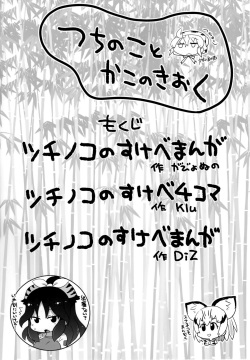 つちのこと
かこのきおく
もくじ
ツチノコのすけべまんが
作 がじょぬの
ツチノコのすけべ4コマ
作 Klu
ツチノコのすけべまんが
作 DiZ